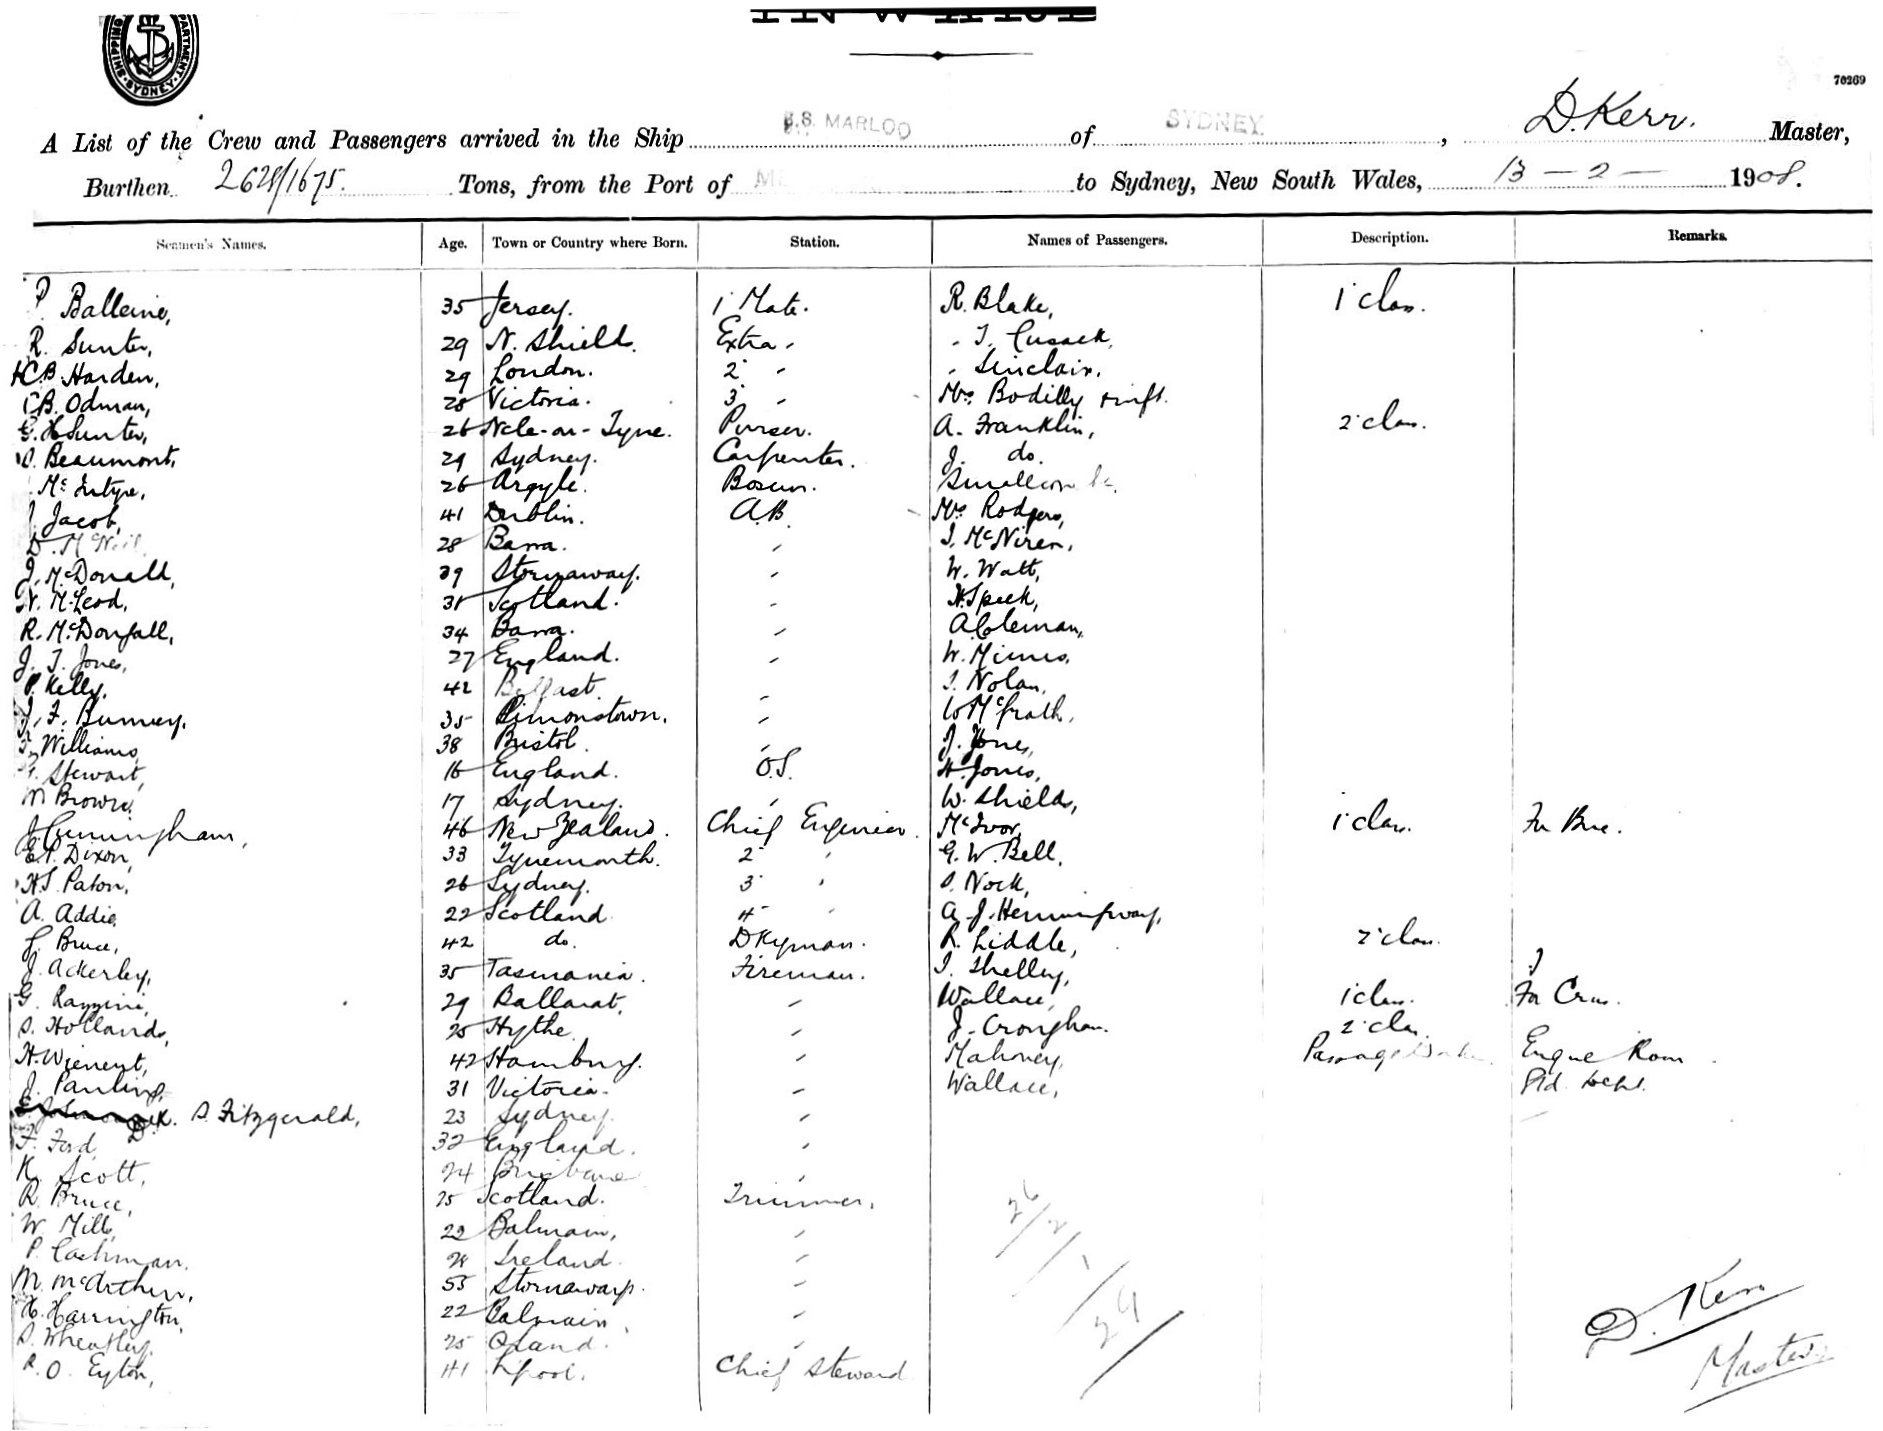 SHIPPING DEPARTMENT. SYDNEY
70269
A List of the Crew and Passengers arrived in the Ship S.S. MARLOO of SYDNEY, D. Kerr. Master,
Burthen 2628/1675. Tons, from the Port of to Sydney, New South Wales, 13 – 2 – 1908.
Seamen's Names. Age. Town or Country where Born. Station. Names of Passengers. Description. Remarks.
P. Balleine, 35 Jersey. 1 Mate. R. Blake, 1 Class.
R. Sunter, 29 N. Shields. Extra " " T. Cusack,
H.C.B. Harden, 29 London. 2 " " Sinclair,
B. Odman, 28 Victoria. 3 " Mrs Bodilly & inft.
G. H. Sunter, 26 Ncle-on-Tyne. Purser. A. Franklin, 2 class.
Beaumont, 29 Sydney. Carpenter. J. do.
McIntyre, 26 Argyle. Bosun.
J. Jacob, 41 Dublin. A.B. Mrs Rodgers,
D. McNeil 28 Barra. " J. McNiren,
J. McDonald, 39 Stornaway. " W. Watt,
N. McLeod, 31 Scotland. " H. Speek,
R. McDougall, 34 Barra. " A Coleman,
J. T. Jones, 27 England. " W. Mimes,
P. Kelly, 42 Belfast. " J. Nolan,
J. F. Burney. 35 Simonstown. " W McGrath,
Williams, 38 Bristol. " J. Jones,
G. Stewart, 16 England. O.S. H. Jones,
M Brown, 17 Sydney. " W. Shields,
J Cunningham, 46 New Zealand. Chief Engineer. McIvor, 1 class. For Bne.
E.P. Dixon, 33 Tynemouth. 2 " G. W. Bell,
H.S. Paton, 26 Sydney. 3 " S. Nock,
A. Addie, 22 Scotland 4 " A. J. Hemmingway,
J. Bruce, 42 do. Dkyman. R. Liddle, 2 class.
J. Ackerley, 35 Tasmania. Fireman. J. Shelley,
G. Razzini, 29 Ballarat, " Wallace, 1 class.
S. Hollands, 25 Hythe " J. Croughan. 2 class.
H. Wienert, 42 Hamburg. " Mahoney, Engine Room
J. Pauling, 31 Victoria. " Wallace,
S. Fitzgerald, 23 Sydney. "
F. Ford, 32 England. "
K. Scott, 24 Brisbane "
R. Bruce, 25 Scotland. Trimmer.
W. Mills, 22 Balmain, "
P. Cashman. 28 Ireland. "
M. McArthur, 55 Stornaway. "
H. Harrington, 22 Balmain, "
S. Wheatley, 25 Qland. "
R. O. Eyton, 41 L'pool. Chief Steward
26/2/ / 29
D. Kerr
Master